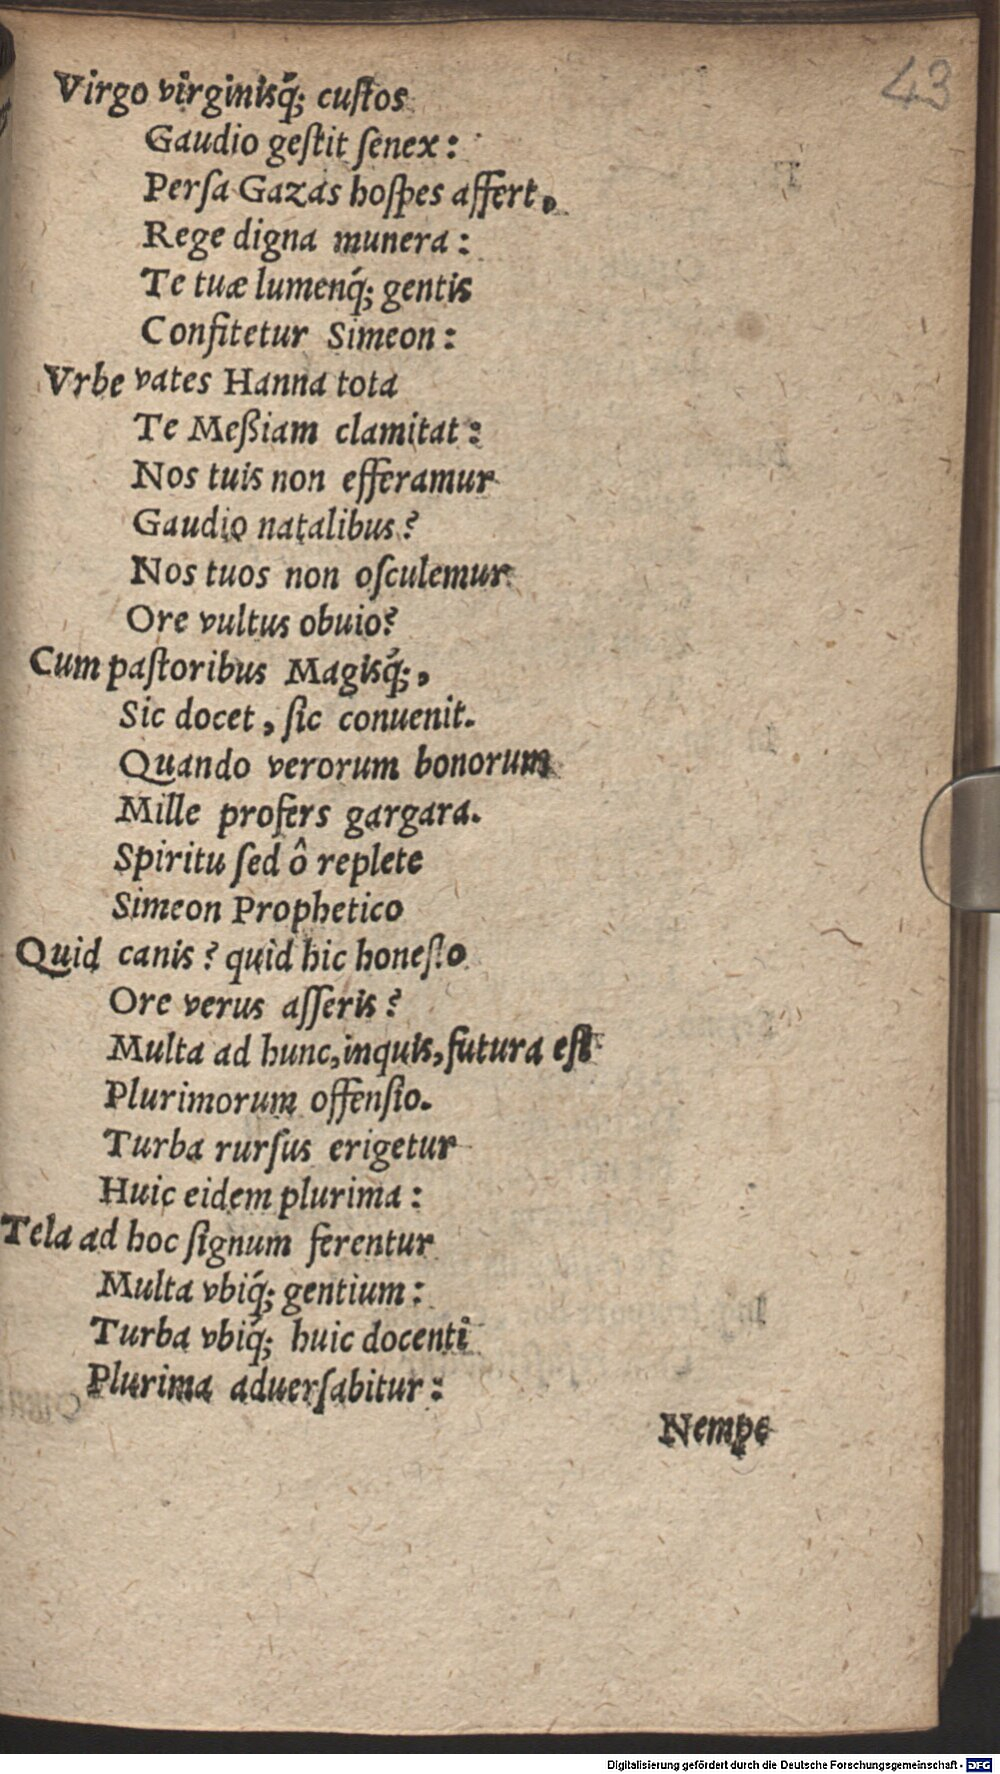 43
Virgo virginisq́; cuſtos
Gaudio geſtit ſenex:
Perſa Gazas hoſpes affert,
Rege digna munera:
Te tuæ lumenq́; gentis
Confitetur Simeon:
Vrbe vates Hanna tota
Te Meßiam clamitat:
Nos tuis non efferamur
Gaudio natalibus?
Nos tuos non oſculemur
Ore vultus obuio?
Cum paſtoribus Magisq́;,
Sic docet, ſic conuenit.
Quando verorum bonorum
Mille profers gargara.
Spiritu ſed ô replete
Simeon Prophetico
Quid canis? quid hic honeſto
Ore verus aſſeris?
Multa ad hunc, inquis, futura eſt
Plurimorum offenſio.
Turba rurſus erigetur
Huic eidem plurima:
Tela ad hoc ſignum ferentur
Multa vbiq́; gentium:
Turba vbiq́; huic docenti
Plurima aduerſabitur:
Nempe
Digitalisierung gefördert durch die Deutsche Forschungsgemeinschaft - DFG